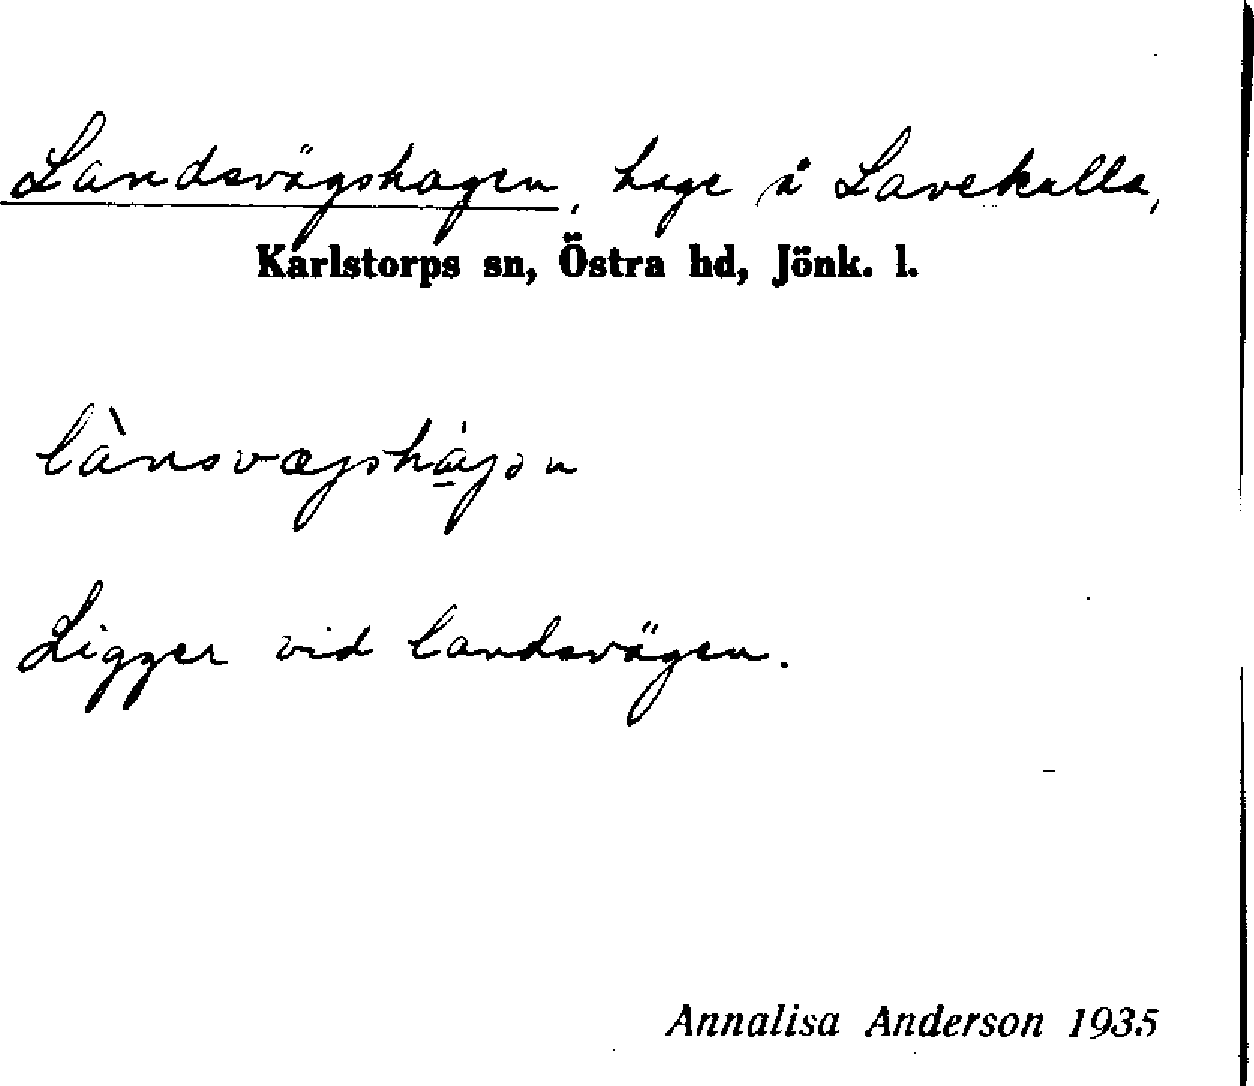 Landsvägshagen, hage å Lavekulla,
Karlstorps sn, Östra hd, Jönk. l.
lànsvægshá̱gən
Ligger vid landsvägen.
Annalisa Anderson 1935